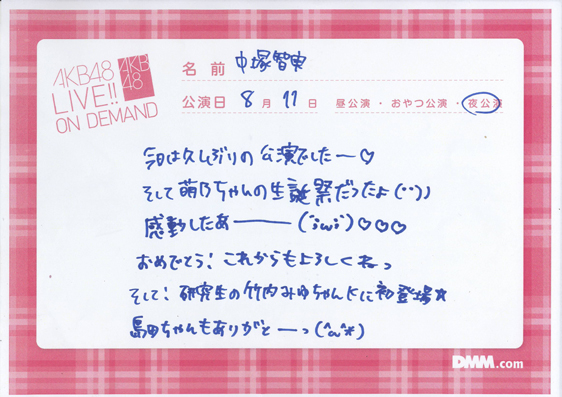 AKB48
LIVE!!
ON DEMAND
AKB
48
名前 中塚智実
公演日 8月11日 昼公演・おやつ公演・夜公演
今日は久しぶりの公演でしたー♡
そして萌乃ちゃんの生誕祭だったよ(¨))
感動したあ――(´;ω;`)♡♡♡
おめでとう! これからもよろしくねっ
そして! 研究生の竹内みゆちゃんKに初登場☆
島田ちゃんもありがとーっ(^ω^*)
DMM.com